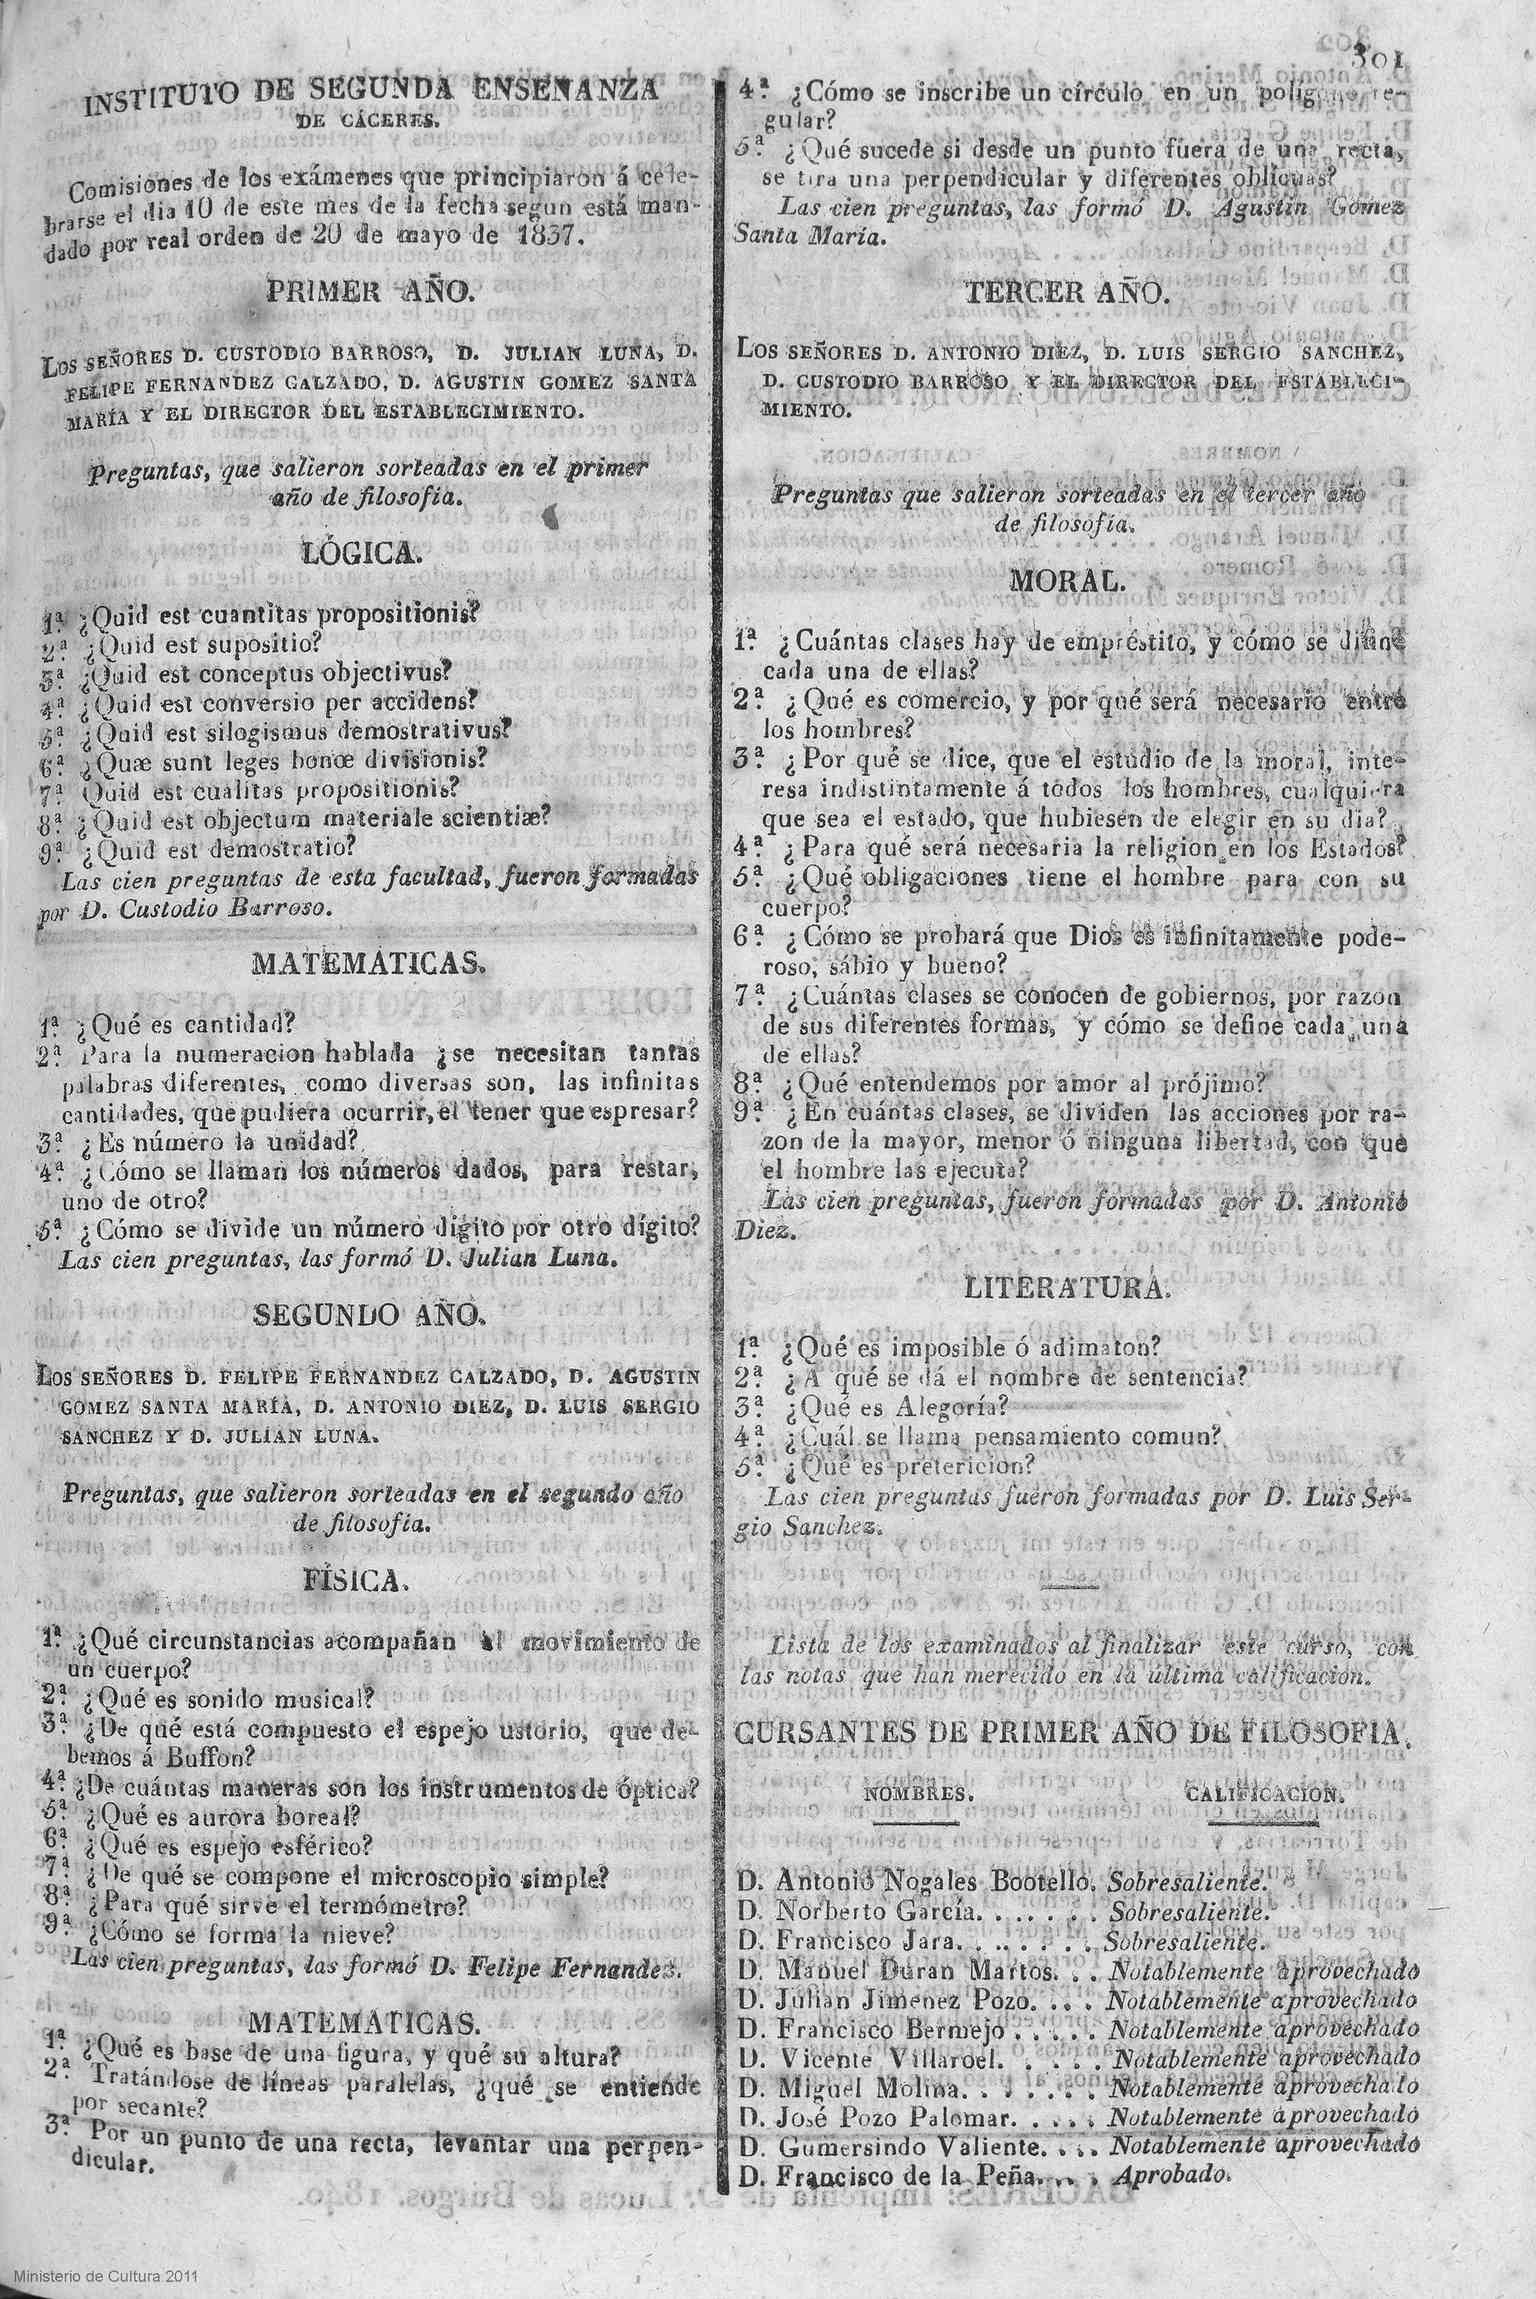 301
INSTITUTO DE SEGUNDA ENSEÑANZA
DE CÁCERES.
Comisiones de los exámenes que principiaron á cele-
brarse el dia 10 de este mes de la fecha segun está man-
dado por real orden de 20 de mayo de 1837.
PRIMER AÑO.
LOS SEÑORES D. CUSTODIO BARROSO, D. JULIAN LUNA, D.
FELIPE FERNANDEZ CALZADO, D. AGUSTIN GOMEZ SANTA
MARÍA Y EL DIRECTOR DEL ESTABLECIMIENTO.
Preguntas, que salieron sorteadas en el primer
año de filosofia.
LÓGICA.
1ª ¿Quid est cuantitas propositionis?
2ª ¿Quid est supositio?
3ª ¿Quid est conceptus objectivus?
4ª ¿Quid est conversio per accidens?
5ª ¿Quid est silogismus demostrativus?
6ª ¿Quæ sunt leges bonœ divisionis?
7ª Quid est cualitas propositionis?
8ª ¿Quid est objectum materiale scientiæ?
9ª ¿Quid est demostratio?
Las cien preguntas de esta facultad, fueron formadas
por D. Custodio Barroso.
MATEMÁTICAS.
1ª ¿Qué es cantidad?
2ª Para la numeracion hablada ¿se necesitan tantas
palabras diferentes, como diversas son, las infinitas
cantidades, que pudiera ocurrir, el tener que espresar?
3ª ¿Es número la unidad?
4ª ¿Cómo se llaman los números dados, para restar,
uno de otro?
5ª ¿Cómo se divide un número dígito por otro dígito?
Las cien preguntas, las formó D. Julian Luna.
SEGUNDO AÑO.
LOS SEÑORES D. FELIPE FERNANDEZ CALZADO, D. AGUSTIN
GOMEZ SANTA MARÍA, D. ANTONIO DIEZ, D. LUIS SERGIO
SANCHEZ Y D. JULIAN LUNA.
Preguntas, que salieron sorteadas en el segundo año
de filosofia.
FÍSICA.
1ª ¿Qué circunstancias acompañan al movimiento de
un cuerpo?
2ª ¿Qué es sonido musical?
3ª ¿De qué está compuesto el espejo ustorio, que de-
bemos á Buffon?
4ª ¿De cuántas maneras son los instrumentos de óptica?
5ª ¿Qué es aurora boreal?
6ª ¿Qué es espejo esférico?
7ª ¿De qué se compone el microscopio simple?
8ª ¿Para qué sirve el termómetro?
9ª ¿Cómo se forma la nieve?
Las cien preguntas, las formó D. Felipe Fernandez.
MATEMÁTICAS.
1ª ¿Qué es base de una figura, y qué su altura?
2ª Tratándose de líneas paralelas, ¿qué se entiende
por secante?
3ª Por un punto de una recta, levantar una perpen-
dicular.
4ª ¿Cómo se inscribe un círculo en un polígono re-
gular?
5ª ¿Qué sucede si desde un punto fuera de una recta,
se tira una perpendicular y diferentes oblicuas?
Las cien preguntas, las formó D. Agustin Gomez
Santa María.
TERCER AÑO.
LOS SEÑORES D. ANTONIO DIEZ, D. LUIS SERGIO SANCHEZ,
D. CUSTODIO BARROSO Y EL DIRECTOR DEL ESTABLECI-
MIENTO.
Preguntas que salieron sorteadas en el tercer año
de filosofía.
MORAL.
1ª ¿Cuántas clases hay de empréstito, y cómo se difine
cada una de ellas?
2ª ¿Qué es comercio, y por qué será necesario entre
los hombres?
3ª ¿Por qué se dice, que el estudio de la moral, inte-
resa indistintamente á todos los hombres, cualquiera
que sea el estado, que hubiesen de elegir en su dia?
4ª ¿Para qué será necesaria la religion en los Estados?
5ª ¿Qué obligaciones tiene el hombre para con su
cuerpo?
6ª ¿Cómo se probará que Dios es infinitamente pode-
roso, sábio y bueno?
7ª ¿Cuántas clases se conocen de gobiernos, por razon
de sus diferentes formas, y cómo se define cada una
de ellas?
8ª ¿Qué entendemos por amor al prójimo?
9ª ¿En cuántas clases, se dividen las acciones por ra-
zon de la mayor, menor ó ninguna libertad, con que
el hombre las ejecuta?
Las cien preguntas, fueron formadas por D. Antonio
Diez.
LITERATURA.
1ª ¿Qué es imposible ó adimaton?
2ª ¿A qué se dá el nombre de sentencia?
3ª ¿Qué es Alegoría?
4ª ¿Cuál se llama pensamiento comun?
5ª ¿Qué es pretericion?
Las cien preguntas fueron formadas por D. Luis Ser-
gio Sanchez.
Lista de los examinados al finalizar este curso, con
las notas que han merecido en la última calificacion.
CURSANTES DE PRIMER AÑO DE FILOSOFIA.
NOMBRES. CALIFICACION.
D. Antonio Nogales Bootello. Sobresaliente.
D. Norberto García. . . . . . . Sobresaliente.
D. Francisco Jara. . . . . . . . Sobresaliente.
D. Manuel Duran Martos. . . Notablemente aprovechado
D. Julian Jimenez Pozo. . . . Notablemente aprovechado
D. Francisco Bermejo . . . . . Notablemente aprovechado
D. Vicente Villaroel. . . . . . Notablemente aprovechado
D. Miguel Molina. . . . . . . Notablemente aprovechado
D. José Pozo Palomar. . . . . Notablemente aprovechado
D. Gumersindo Valiente. . . . Notablemente aprovechado
D. Francisco de la Peña. . . . Aprobado.
Ministerio de Cultura 2011